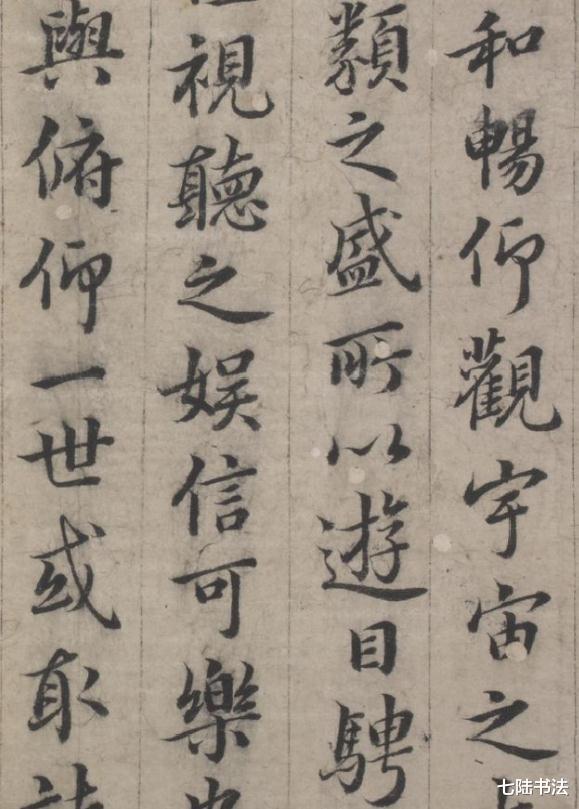 和暢仰觀宇宙之
類之盛所以遊目騁
視聽之娛信可樂也
與俯仰一世或取諸
七陆书法